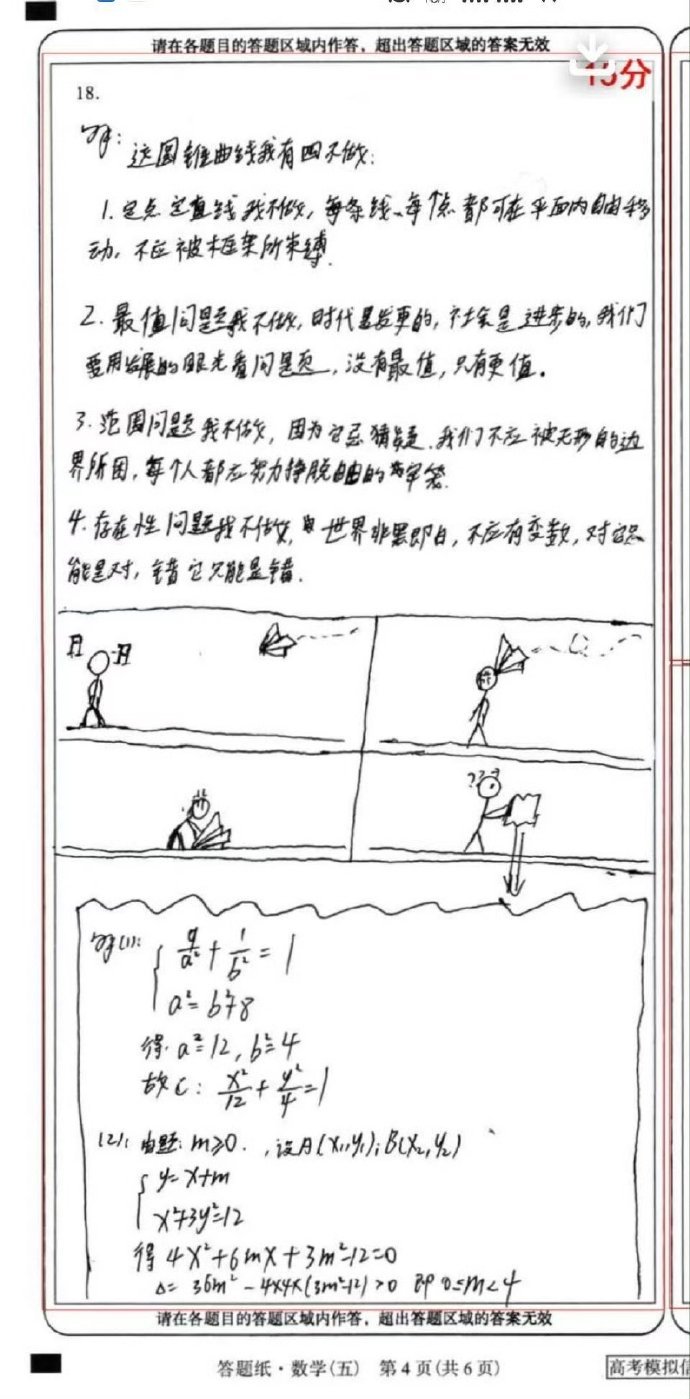 请在各题目的答题区域内作答，超出答题区域的答案无效
15分
18.
解：这圆锥曲线我有四不做：
1.定点定直线我不做，每条线、每个点都可在平面内自由移
动，不应被框架所束缚.
2.最值问题我不做，时代是发更的，社会是进步的，我们
要用发展的眼光看问题，没有最值，只有更值。
3.范围问题我不做，因为它忌猜疑.我们不应被无形的边
界所困，每个人都应努力挣脱自由的牢笼.
4.存在性问题我不做，世界非黑即白，不应有变数，对它只
能是对，错它只能是错.
???
解(1):
9/a²+1/b²=1
a²=b²+8
得.a²=12,b²=4
故C：x²/12+y²/4=1
(2)：由题：m≥0.，设A(x₁,y₁)；B(x₂,y₂)
y=x+m
x²+3y²=12
得4x²+6mx+3m²-12=0
Δ=36m²-4×4×(3m²-12)>0 即0≤m<4
请在各题目的答题区域内作答，超出答题区域的答案无效
答题纸·数学(五) 第4页(共6页)
高考模拟